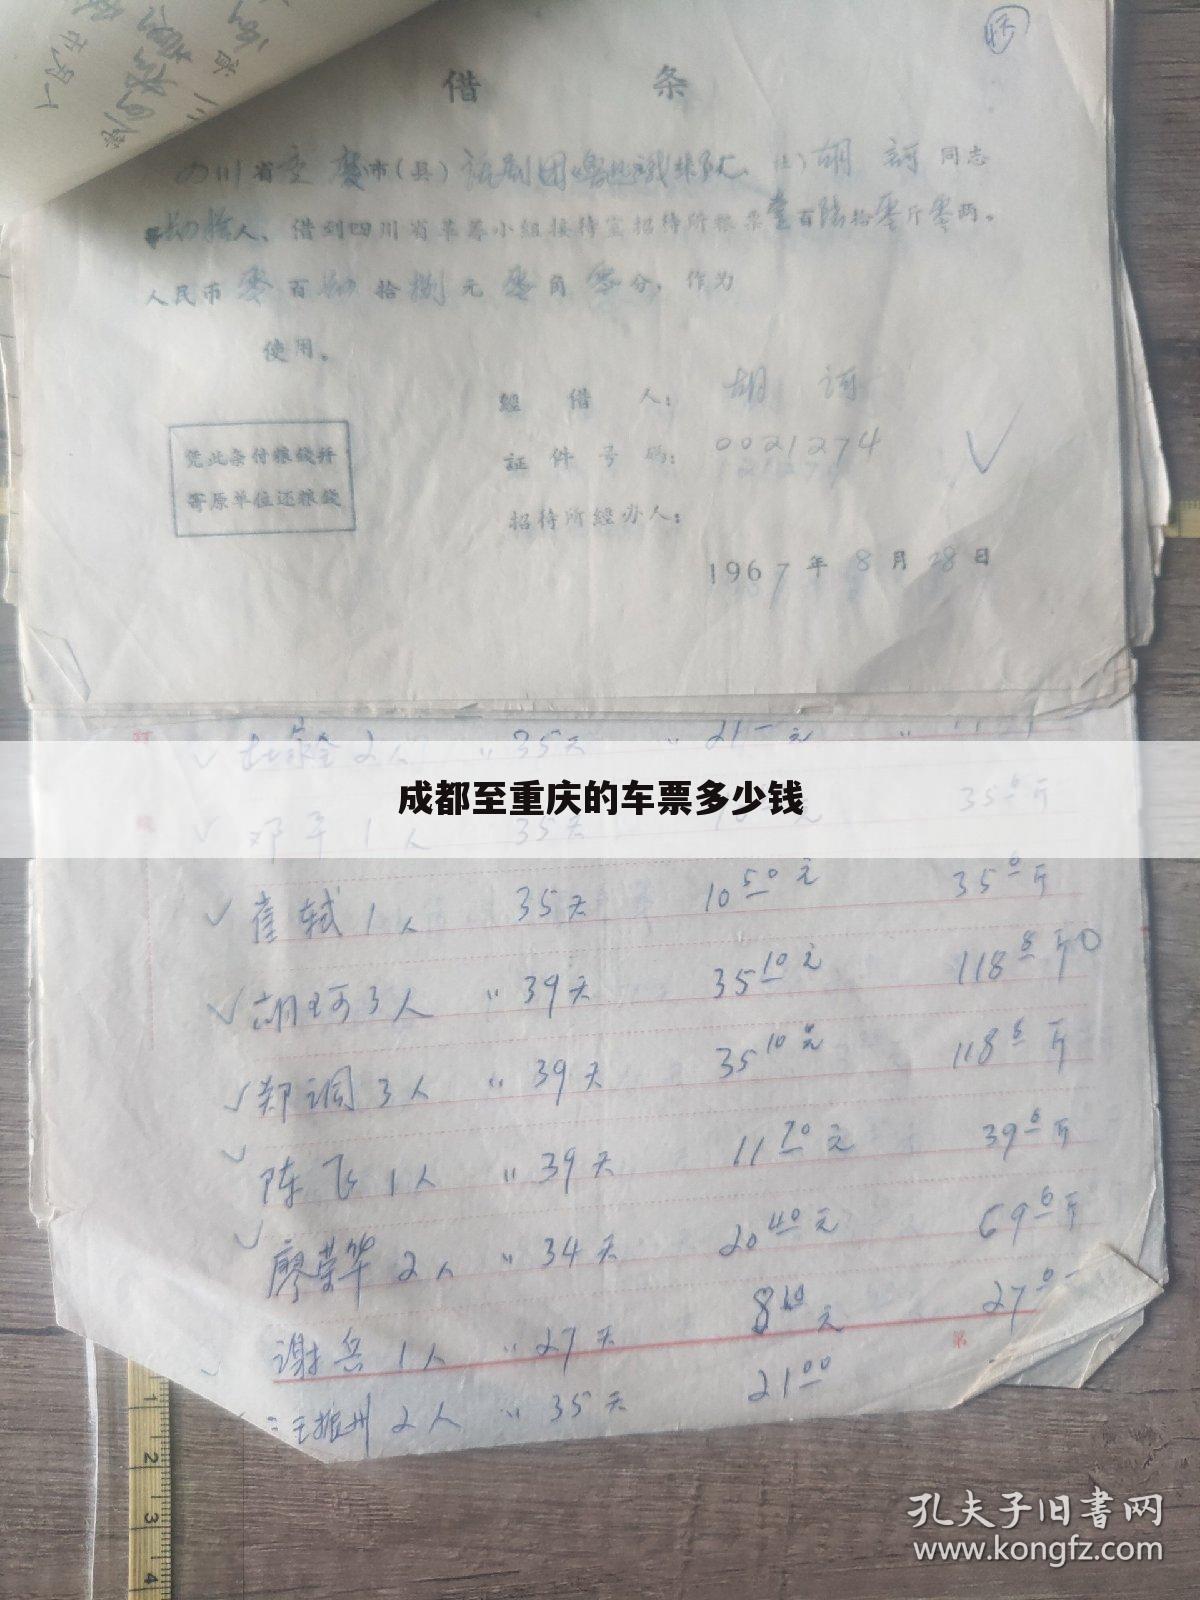 借 条
川省重庆市(县)话剧团 胡 同志
拾人、借到四川省革筹小组接待室招待所粮票壹百陆拾零斤零两。
人民币零百 拾捌元零角零分,作为
使用。
经 借 人: 胡
证 件 号 码: 0021274
招待所经办人:
凭此条付粮钱并
寄原单位还粮钱
1967年8月28日
2人 " 35天 " 21 元 "
成都至重庆的车票多少钱
邓平 1人 35天 35.0斤
崔轼 1人 35天 10.50元 35.0斤
胡 3人 " 39天 35.10元 118 斤
郑 3人 " 39天 35.10元 118 斤
陈飞 1人 " 39天 11.70元 39 斤
廖荣华 2人 " 34天 20.40元 69 斤
谢岳 1人 " 27天 8.10元 27.0
王振州 2人 " 35天 21.00
第
1
2
3
4
孔夫子旧书网
www.kongfz.com